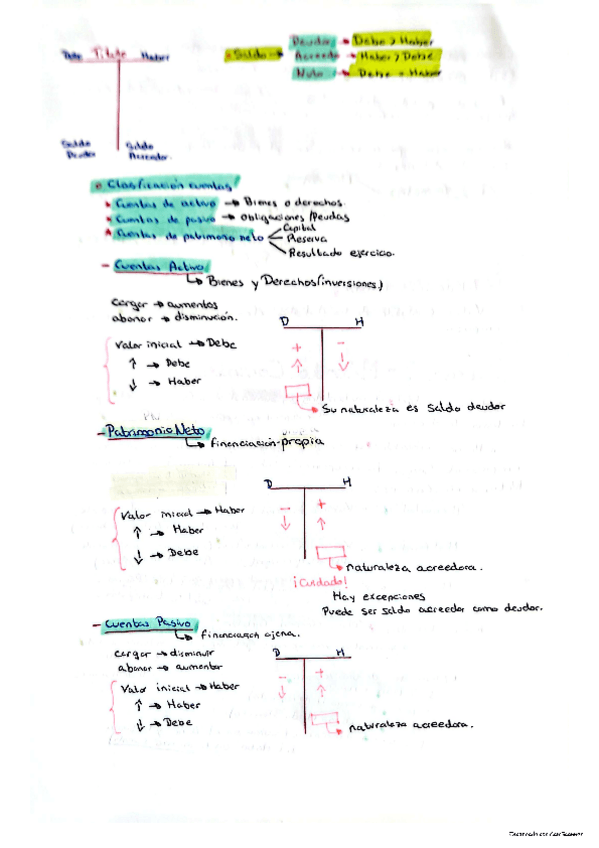 Debe Título Haber
Saldo → Deudor → Debe > Haber
Acreedor → Haber > Debe
Nulo → Debe = Haber
Saldo Deudor
Saldo Acreedor.
Clasificación cuentas
Cuentas de activo → Bienes o derechos.
Cuentas de pasivo → obligaciones/Deudas
Cuentas de patrimonio neto
Capital
Reserva
Resultado ejercicio.
- Cuentas Activo
Bienes y Derechos (inversiones)
cargar → aumentos
abonar → disminución.
D H
Valor inicial → Debe
+ -
↑ → Debe
↑ ↓
↓ → Haber
Su naturaleza es saldo deudor
- Patrimonio Neto
financiación propia
D H
Valor inicial → Haber
- +
↑ → Haber
↓ ↑
↓ → Debe
naturaleza acreedora.
¡Cuidado!
Hay excepciones
Puede ser saldo acreedor como deudor.
- Cuentas Pasivo
financiación ajena.
cargar → disminuir
D H
abonar → aumentar
Valor inicial → Haber
- +
↑ → Haber
↓ ↑
↓ → Debe
naturaleza acreedora.